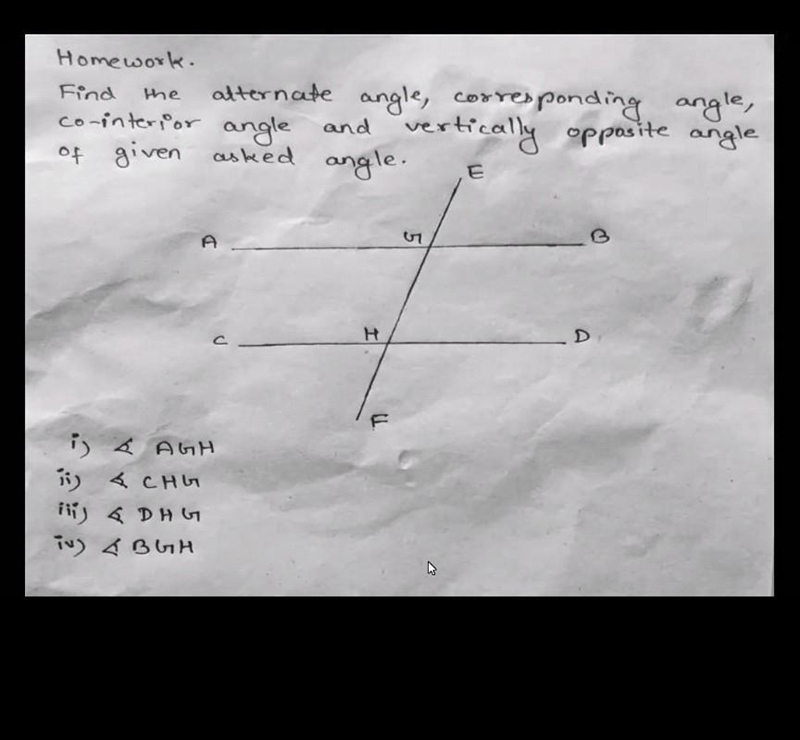 Homework.
Find the alternate angle, corresponding angle,
co-interior angle and vertically opposite angle
of given asked angle.
E
A G B
C H D
F
i) ∡ AGH
ii) ∡ CHG
iii) ∡ DHG
iv) ∡ BGH